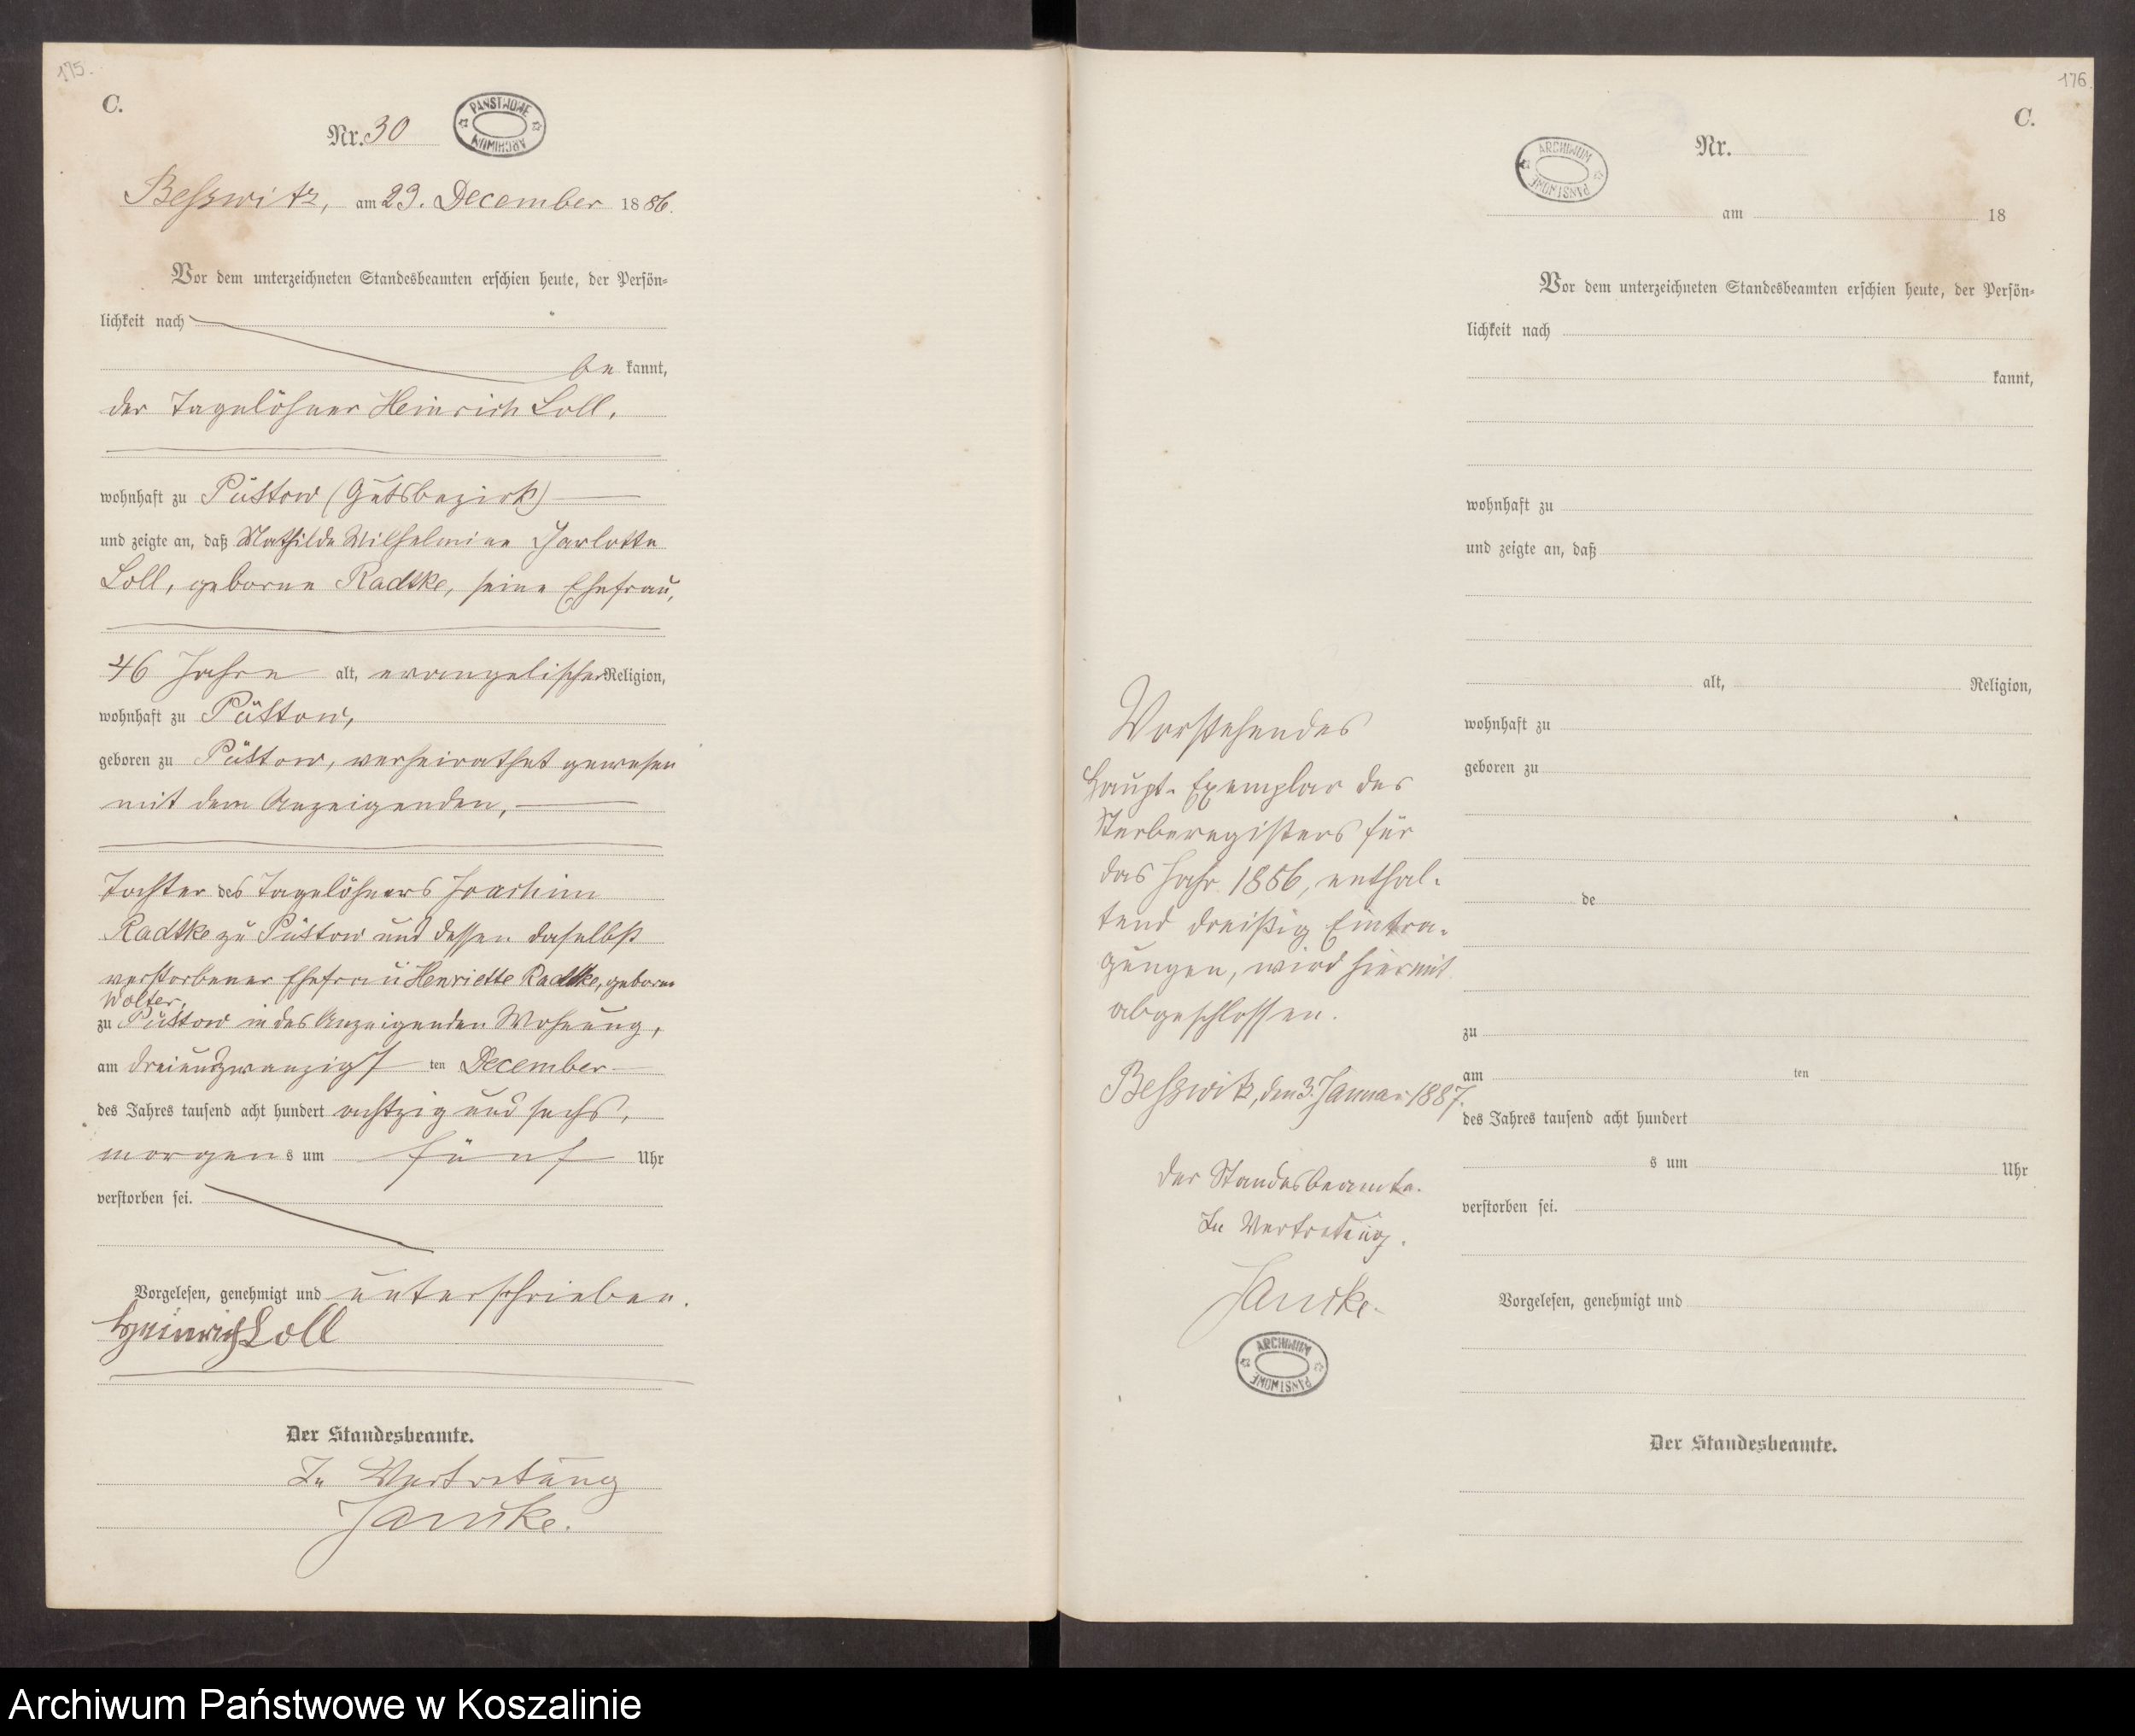 175.
C.
Nr. 30
PAŃSTWOWE
ARCHIWUM
Beßwitz, am 23. December 1886.
Vor dem unterzeichneten Standesbeamten erschien heute, der Persön=
lichkeit nach
be kannt,
der Tagelöhner Heinrich Loll,
wohnhaft zu Püstow (Gutsbezirk)
und zeigte an, daß Mathilde Wilhelmine Charlotte
Loll, geborne Radtke, seine Ehefrau,
46 Jahre alt, evangelischer Religion,
wohnhaft zu Püstow,
geboren zu Püstow, verheirathet gewesen
mit dem Anzeigenden,
Tochter des Tagelöhners Joachim
Radtke zu Püstow und dessen daselbst
verstorbener Ehefrau Henriette Radtke, geborne
Wolter,
zu Püstow in des Anzeigenden Wohnung,
am dreiundzwanzigsten December
des Jahres tausend acht hundert achtzig und sechs,
morgens um fünf Uhr
verstorben sei.
Vorgelesen, genehmigt und unterschrieben.
Heinrich Loll
Der Standesbeamte.
In Vertretung
Jancke.
176.
C.
Nr.
ARCHIWUM
PAŃSTWOWE
am 18
Vor dem unterzeichneten Standesbeamten erschien heute, der Persön=
lichkeit nach
kannt,
wohnhaft zu
und zeigte an, daß
alt, Religion,
wohnhaft zu
geboren zu
de
zu
am ten
des Jahres tausend acht hundert
s um Uhr
verstorben sei.
Vorgelesen, genehmigt und
Der Standesbeamte.
Vorstehendes
Haupt-Exemplar des
Sterberegisters für
das Jahr 1886, enthal-
tend dreißig Eintra-
gungen, wird hiermit
abgeschlossen.
Beßwitz, den 3. Januar 1887.
Der Standesbeamte.
In Vertretung.
Jancke.
ARCHIWUM
PAŃSTWOWE
Archiwum Państwowe w Koszalinie